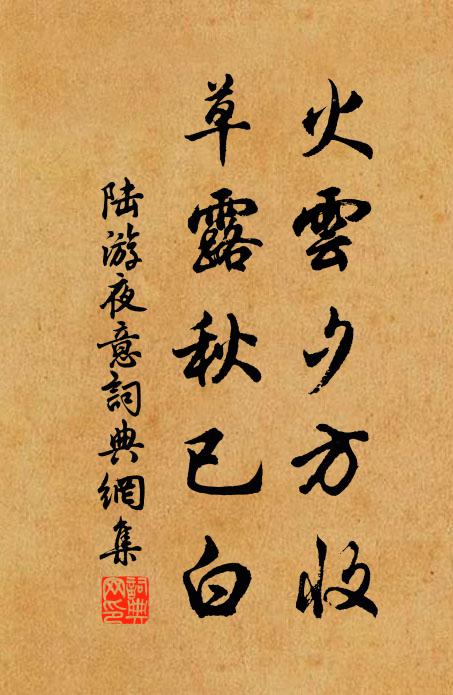 火雲夕方收
草露秋已白
陸游夜意詞典網集
詞典網印